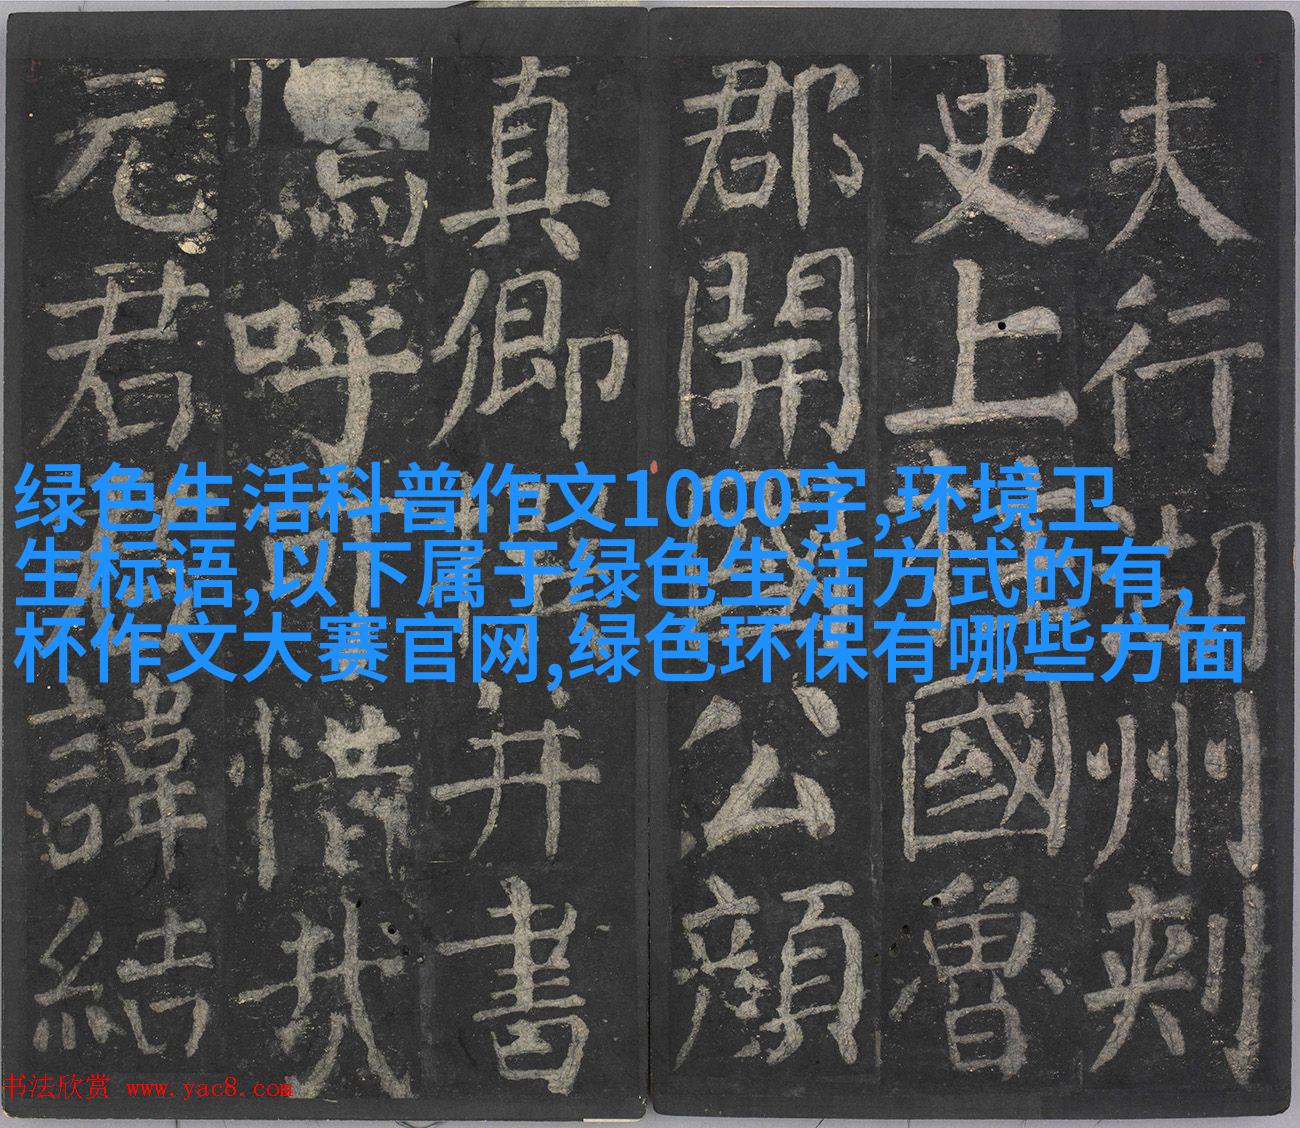 夫行湖州刺
史上柱國魯
郡開國公顏
真卿撰并書
嗚呼可惜哉
元君君諱結
绿色生活科普作文1000字,环境卫
生标语,以下属于绿色生活方式的有,
杯作文大赛官网,绿色环保有哪些方面
书法欣赏 www.yac8.com